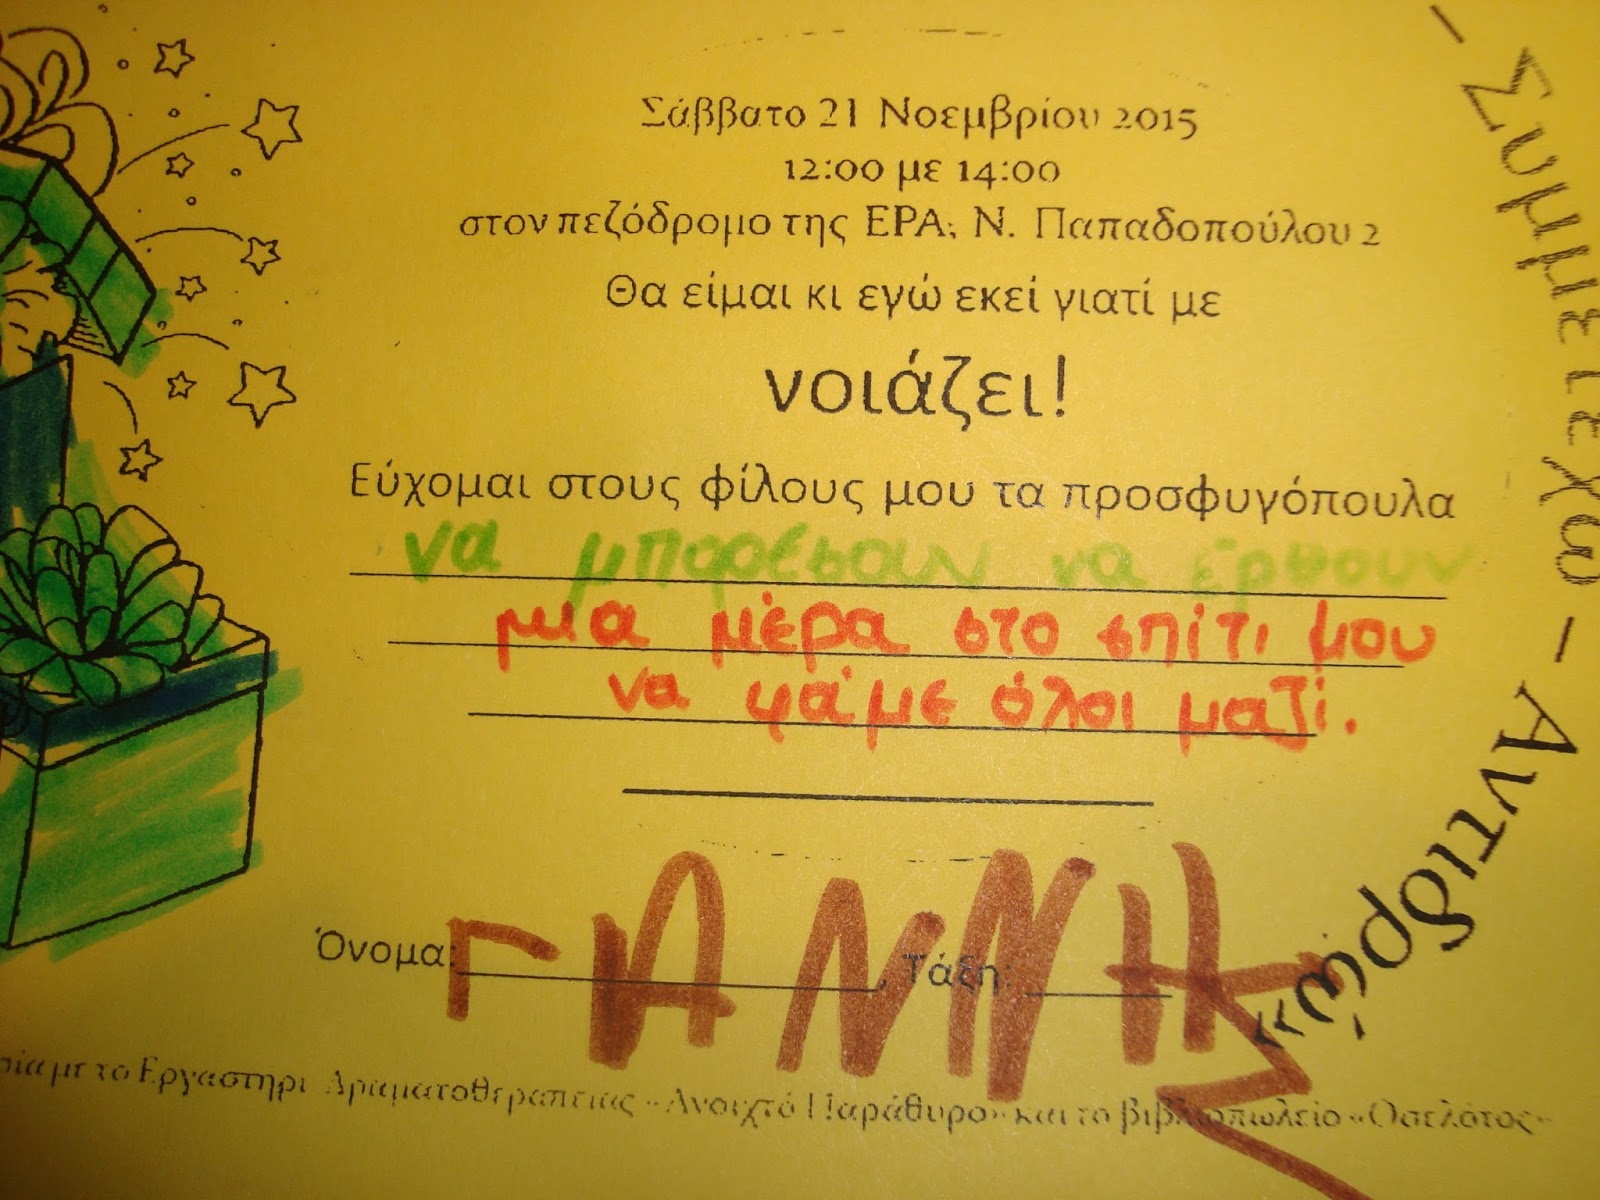 Σάββατο 21 Νοεμβρίου 2015
12:00 με 14:00
στον πεζόδρομο της ΕΡΑ, Ν. Παπαδοπούλου 2
Θα είμαι κι εγώ εκεί γιατί με
νοιάζει!
Εύχομαι στους φίλους μου τα προσφυγόπουλα
να μπορέσουν να έρθουν
μια μέρα στο σπίτι μου
να φάμε όλοι μαζί.
Όνομα: ΓΙΑΝΝΗΣ, Τάξη:
με το Εργαστήρι Δραματοθεραπείας «Ανοιχτό Παράθυρο» και το βιβλιοπωλείο «Οσελότος»
– Συμμετέχω – Αντιδρώ»